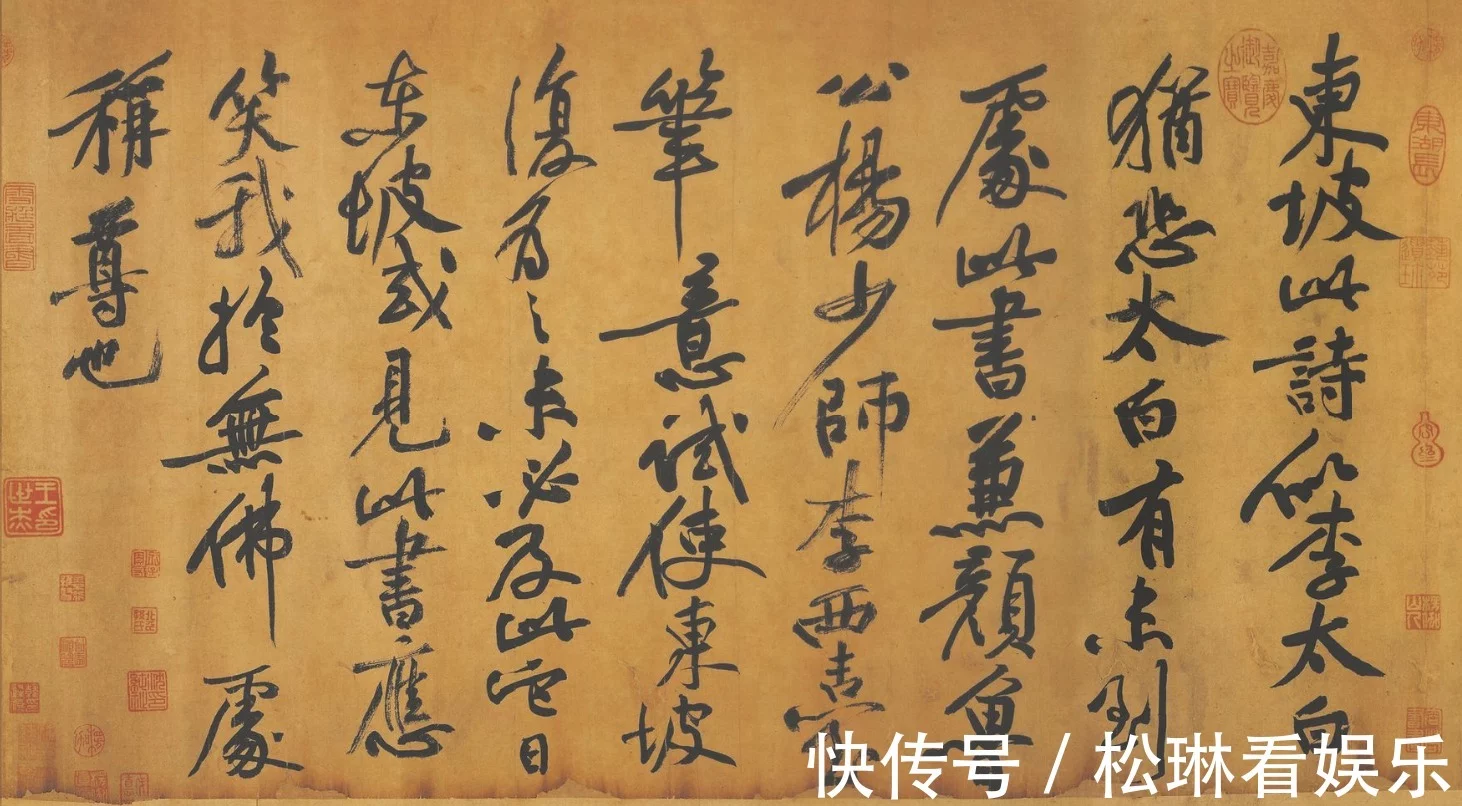 東坡此詩似李太白
猶恐太白有未到
處此書兼顏魯
公楊少師李西臺
筆意試使東坡
復為之未必及此它日
東坡或見此書應
笑我於無佛處
稱尊也
嘉慶御覽之寶
快传号 / 松琳看娱乐